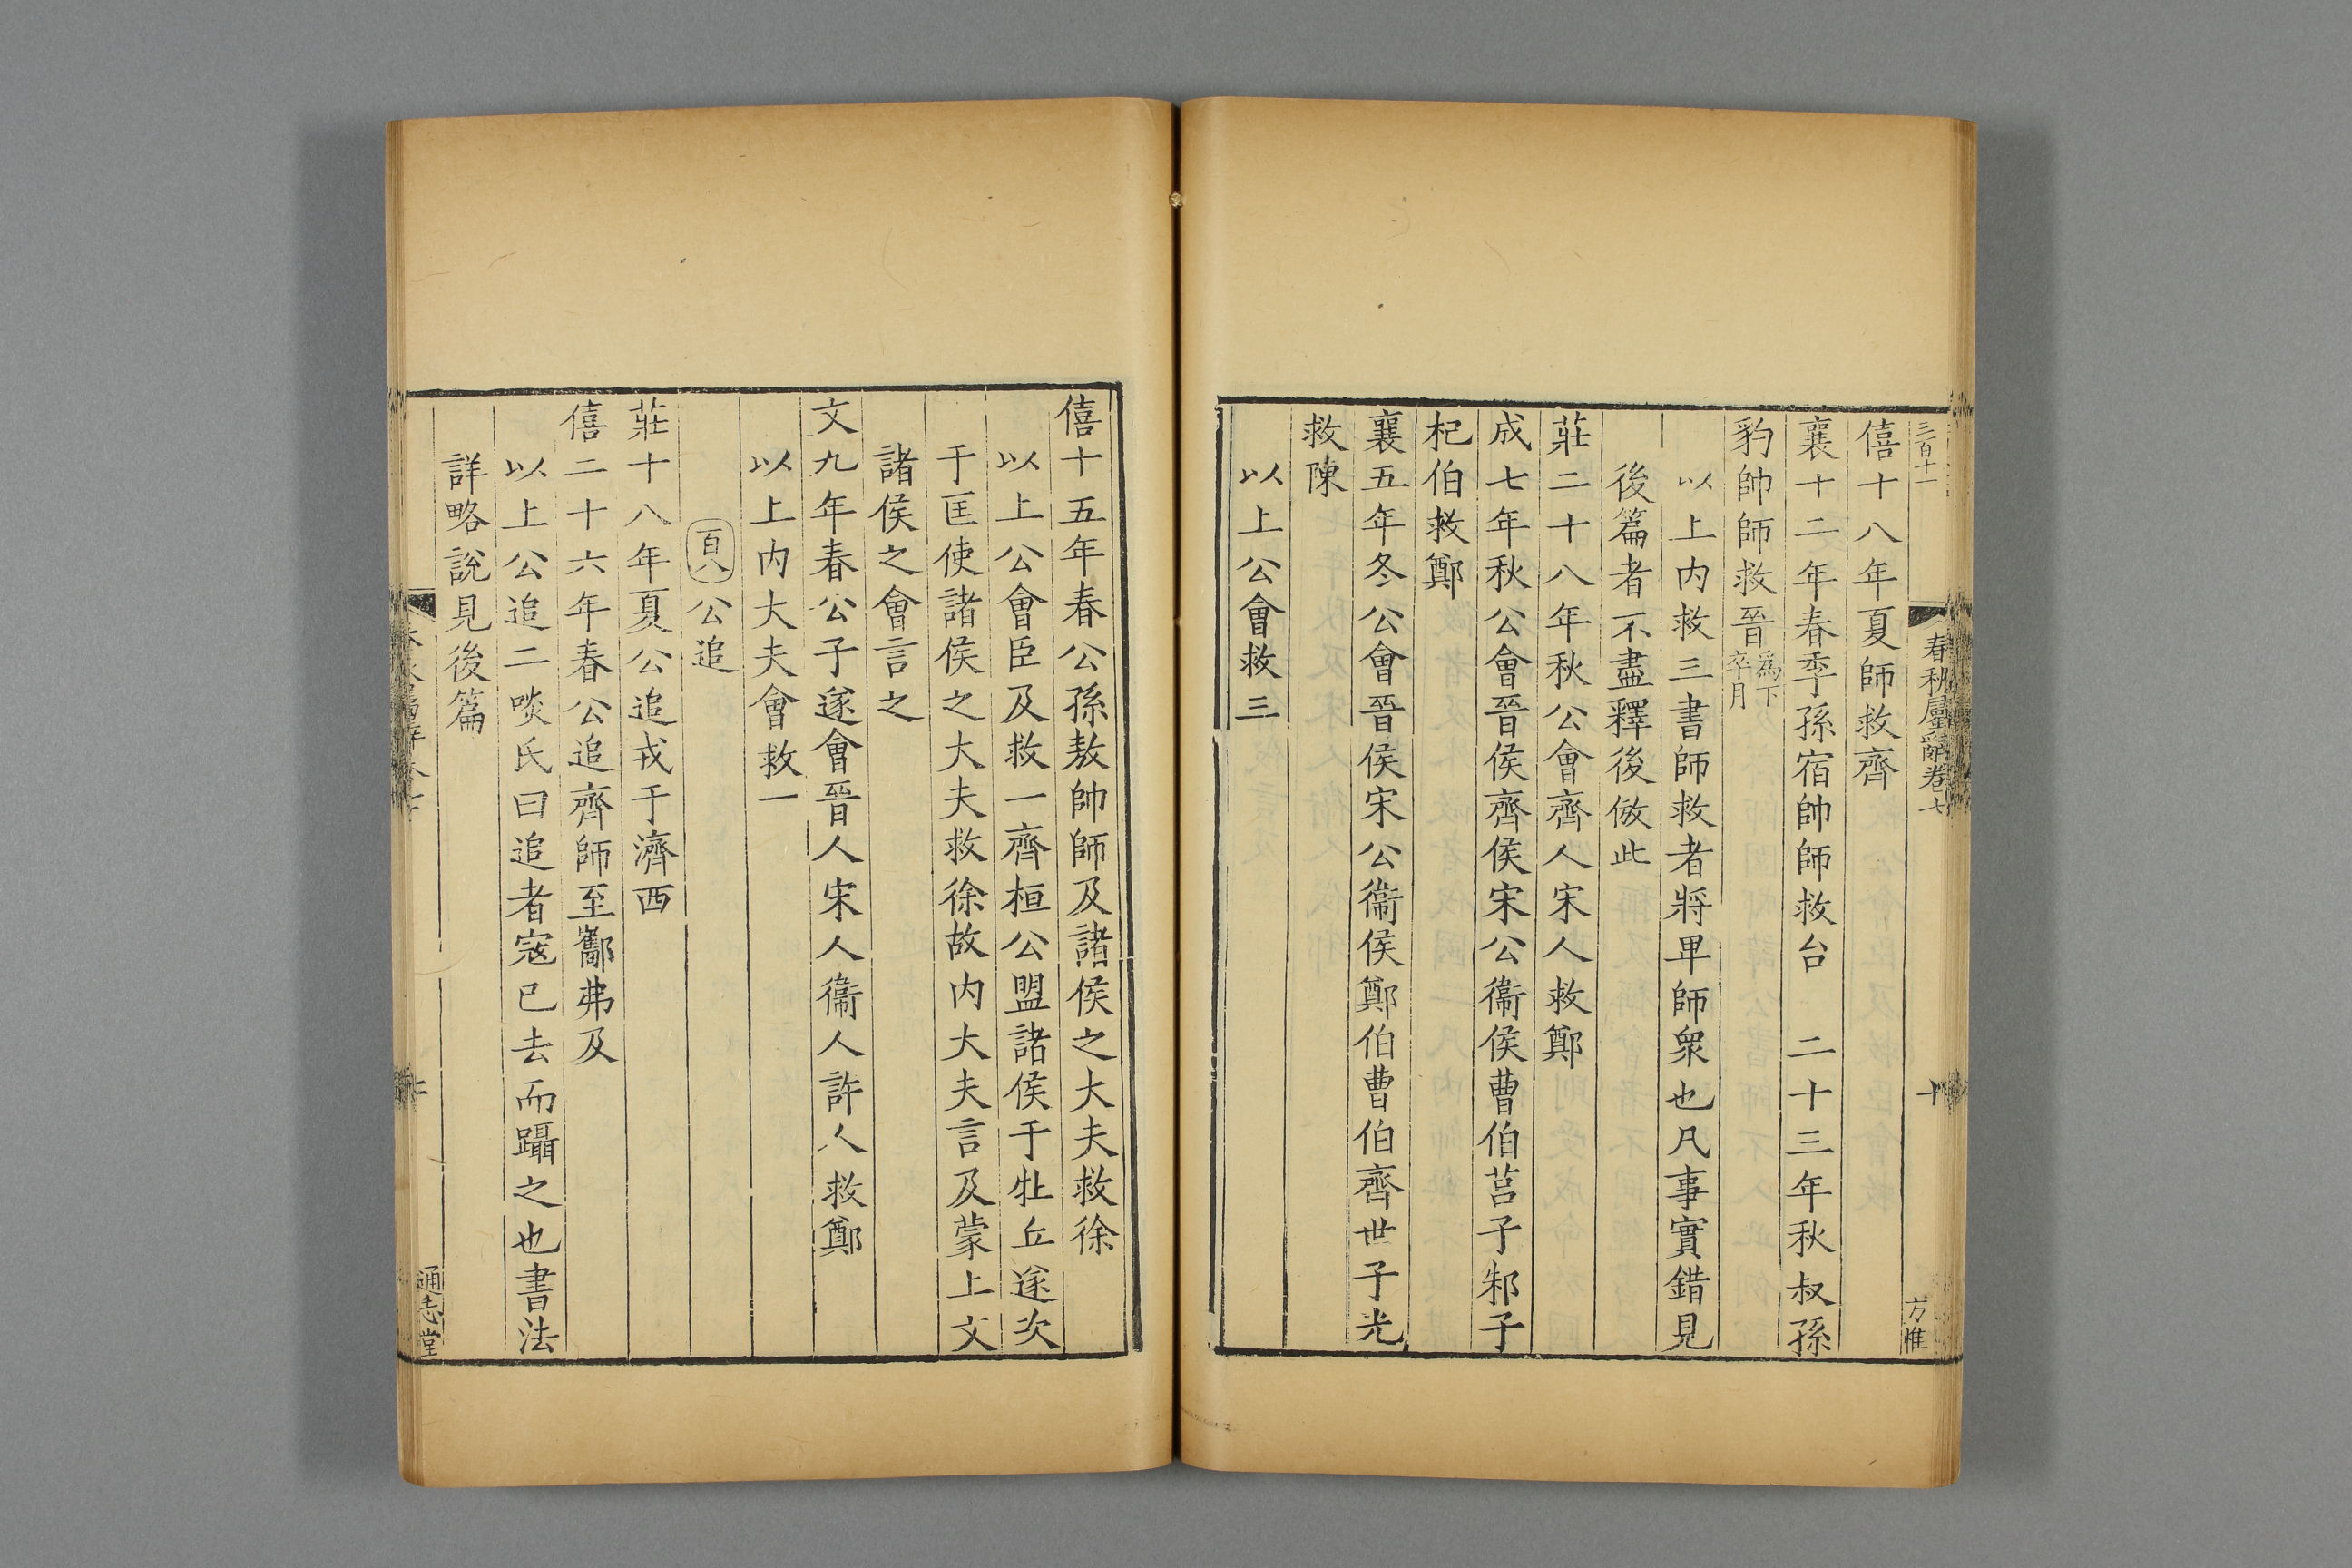 三百十一
春秋屬辭卷七
十
方惟
僖十八年夏師救齊
襄十二年春季孫宿帥師救台　二十三年秋叔孫
豹帥師救晉爲下卒月
以上内救三書師救者將卑師衆也凡事實錯見
後篇者不盡釋後倣此
莊二十八年秋公會齊人宋人救鄭
成七年秋公會晉侯齊侯宋公衞侯曹伯莒子邾子
杞伯救鄭
襄五年冬公會晉侯宋公衞侯鄭伯曹伯齊世子光
救陳
以上公會救三
僖十五年春公孫敖帥師及諸侯之大夫救徐
以上公會臣及救一齊桓公盟諸侯于牡丘遂次
于匡使諸侯之大夫救徐故内大夫言及蒙上文
諸侯之會言之
文九年春公子遂會晉人宋人衞人許人救鄭
以上内大夫會救一
百八公追
莊十八年夏公追戎于濟西
僖二十六年春公追齊師至酅弗及
以上公追二啖氏曰追者寇已去而躡之也書法
詳略說見後篇
通志堂